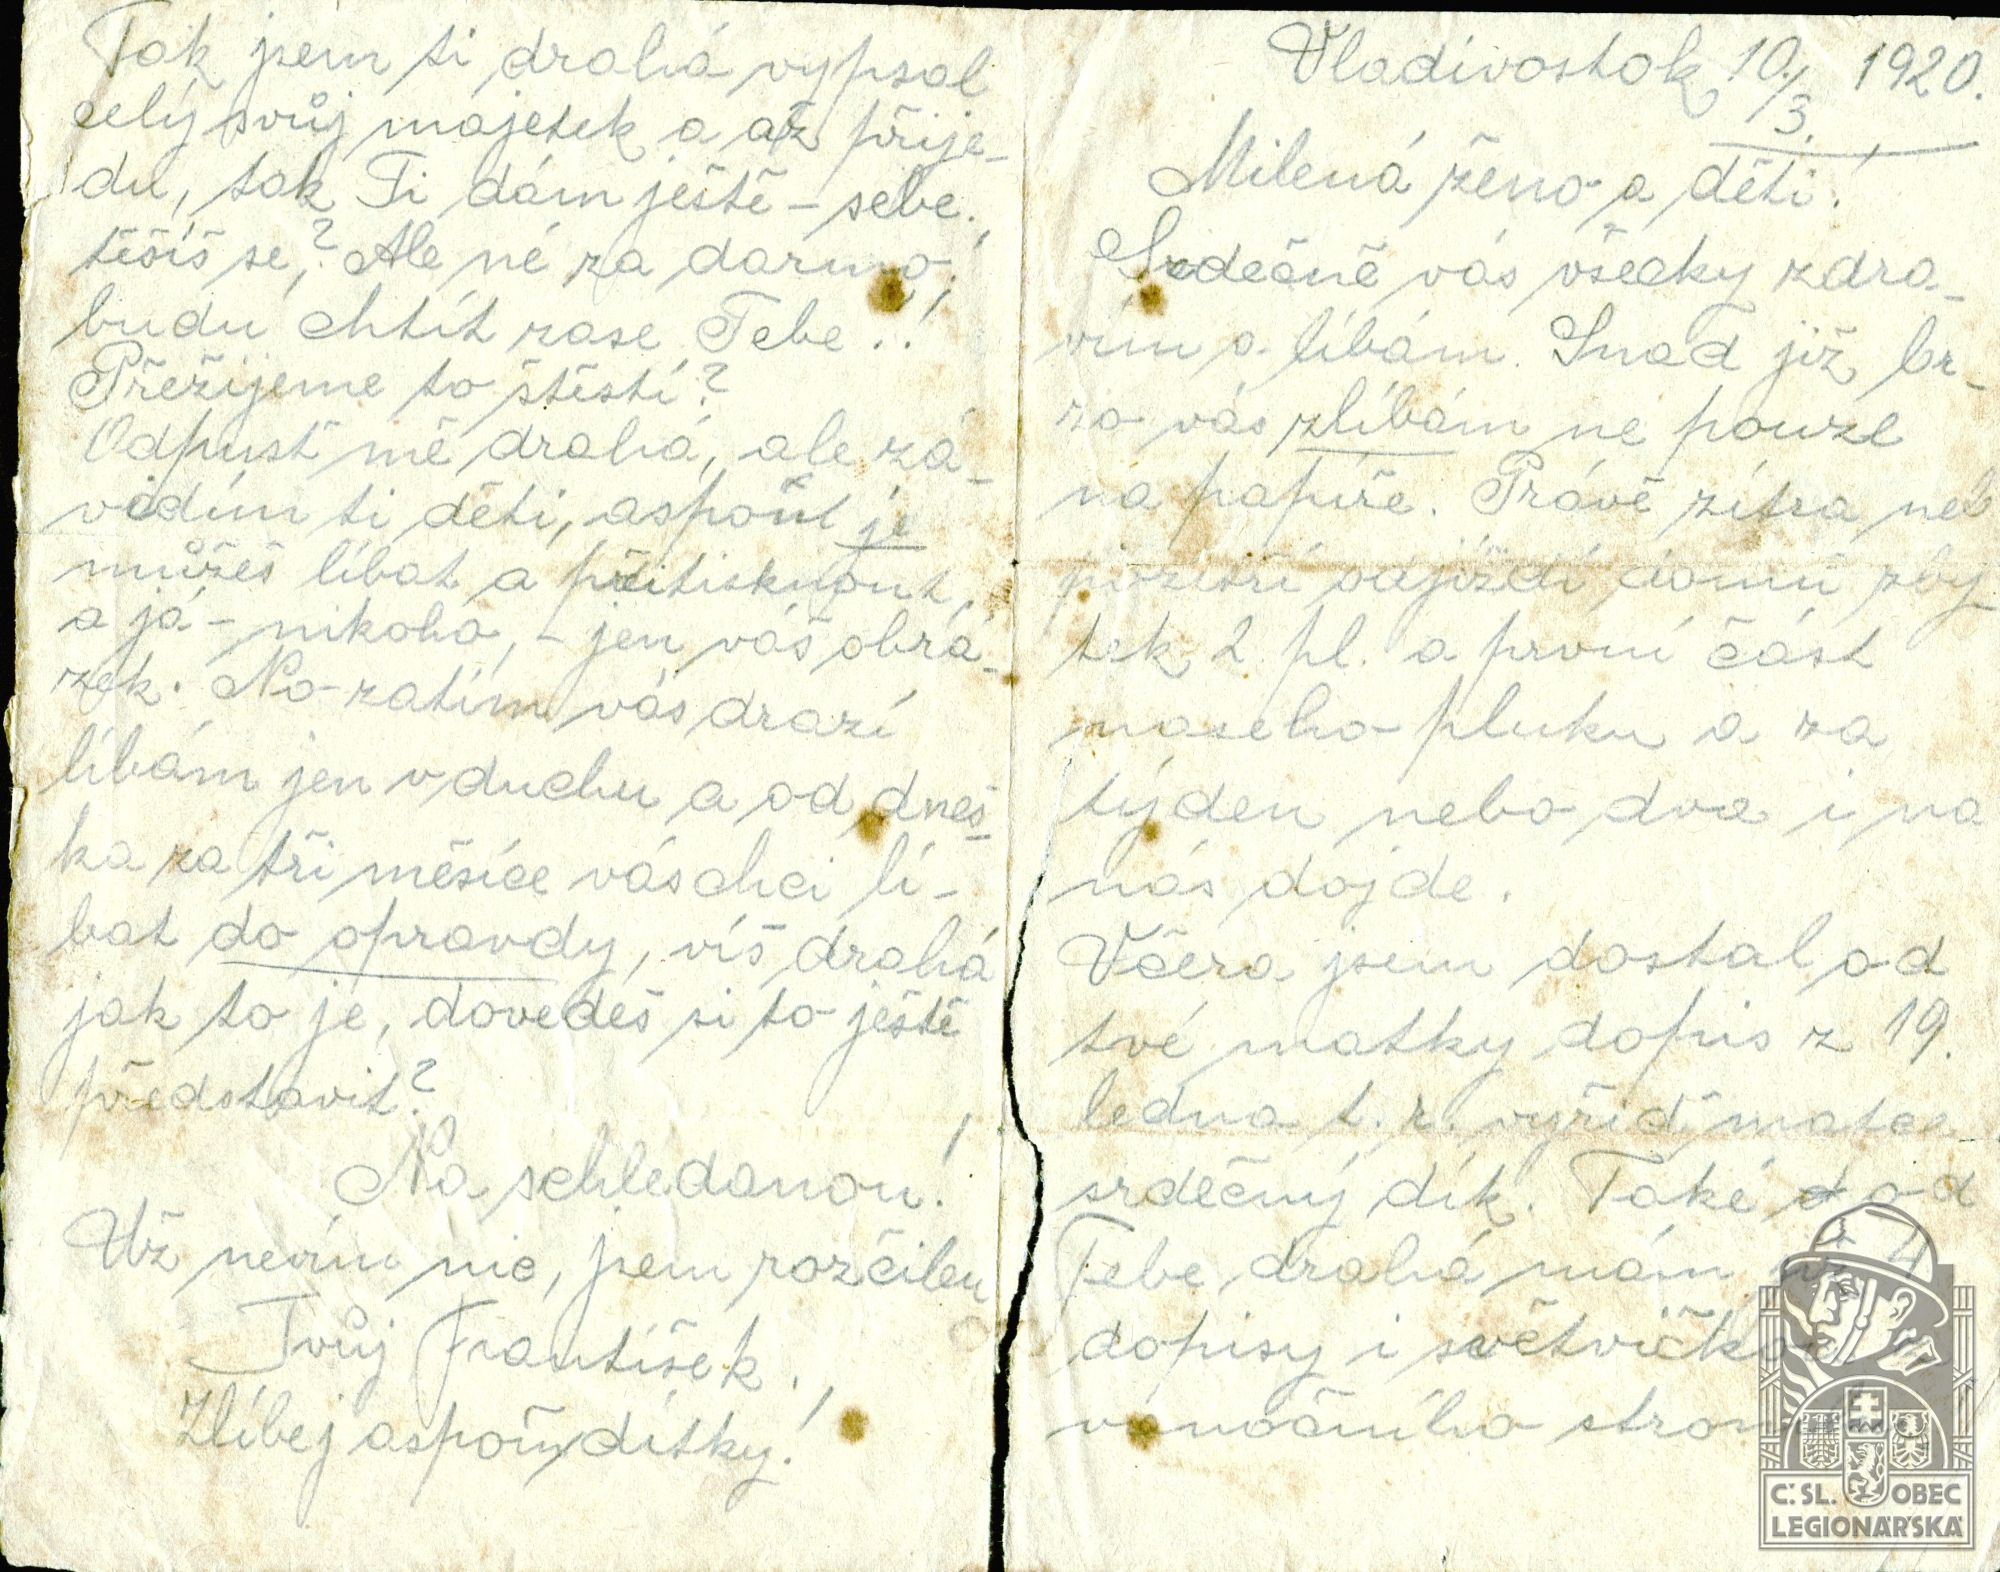 Vladivostok 10./3. 1920.
Milená ženo a děti!
Srdečně vás všecky zdra-
vím a líbám. Snad již br-
zo vás zlíbám ne pouze
na papíře. Právě zítra neb
pozítří odjíždí domů zby-
tek 2. pl. a první část
našeho pluku a za
týden nebo dva i na
nás dojde.
Včera jsem dostal od
tvé matky dopis z 19.
ledna t. r. vyřiď matce
srdečný dík. Také od
Tebe drahá mám 4
dopisy i s větvičkou
vánočního strom
Tak jsem ti drahá vypsal
celý svůj majetek a až přije-
du, tak Ti dám ještě - sebe.,
těšíš se,? Ale né za darmo,!
budu chtít zase Tebe.!
Přežijeme to štěstí?
Odpusť mě drahá, ale zá-
vidím ti děti, aspoň je
můžeš líbat a přitisknout,
a já - nikoho, - jen váš obrá-
zek. No-zatím vás drazí
líbám jen v duchu a od dneš-
ka za tři měsíce vás chci lí-
bat do opravdy, víš drahá
jak to je, dovedeš si to ještě
představit?
Na schledanou!
Už nevím nic, jsem rozčilen
Tvůj František.
Zlíbej aspoň dítky!
Č. SL. OBEC
LEGIONÁŘSKÁ